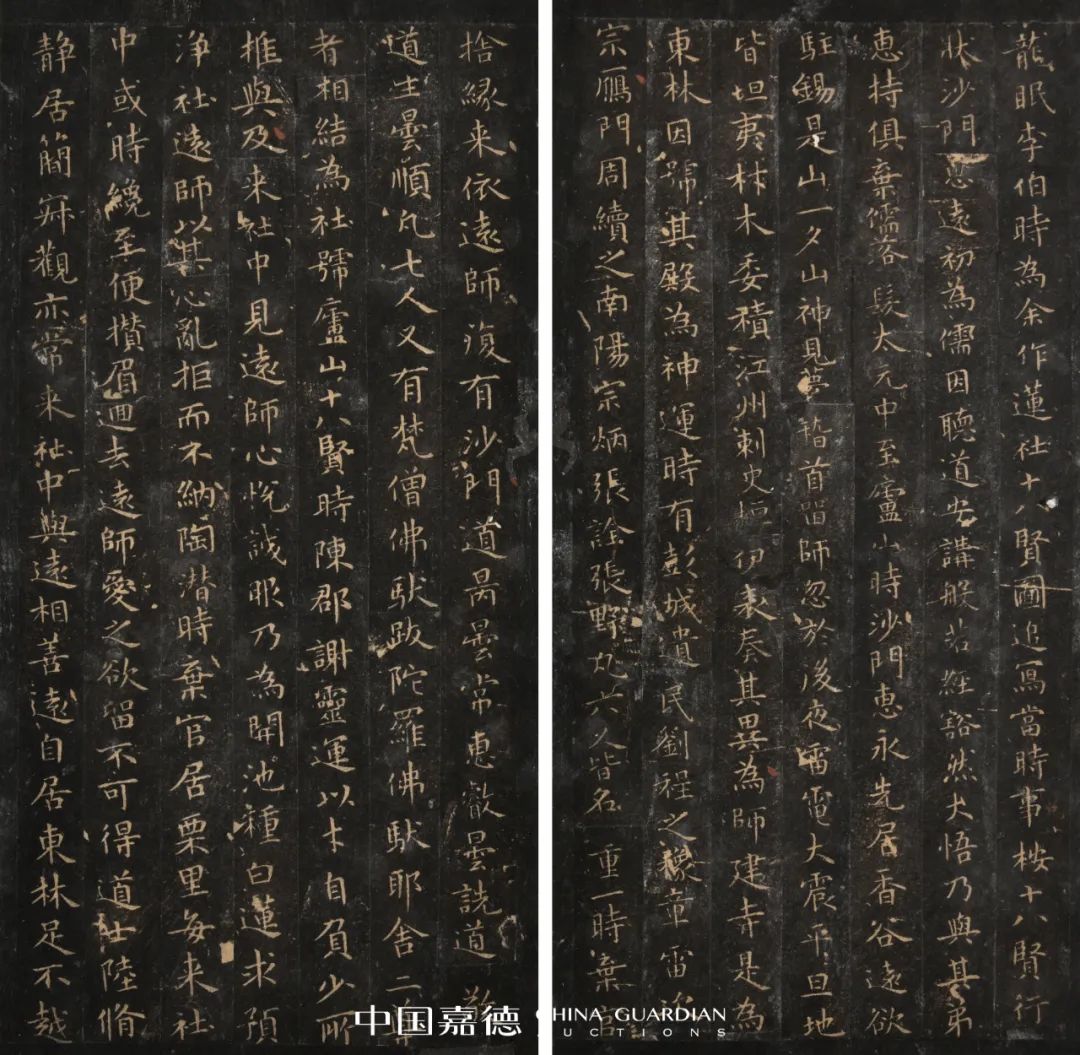 龍眠李伯時為余作蓮社十八賢圖追寫當時事桉十八賢行
狀沙門惠遠初為儒因聽道安講般若經豁然大悟乃與其弟
惠持俱棄儒落髮太元中至廬山時沙門惠永先居香谷遠欲
駐錫是山一夕山神見夢稽首留師忽於後夜雷電大震平旦地
皆坦夷林木委積江州刺史桓伊表奏其異為師建寺是為
東林因號其殿為神運時有彭城遺民劉程之豫章雷
宗鴈門周續之南陽宗炳張詮張野凡六人皆名重一時棄官
捨緣来依遠師復有沙門道昺曇常惠叡曇詵道敬
道生曇順凡七人又有梵僧佛馱跋陀羅佛馱耶舍二尊
者相結為社號廬山十八賢時陳郡謝靈運以才自負少所
推與及来社中見遠師心恱誠服乃為開池種白蓮求預
淨社遠師以其心亂拒而不納陶潛時棄官居栗里每来社
中或時纔至便攅眉迴去遠師愛之欲留不可得道士陸脩
靜居簡寂觀亦常来社中與遠相善遠自居東林足不越
中国嘉德 CHINA GUARDIAN
AUCTIONS